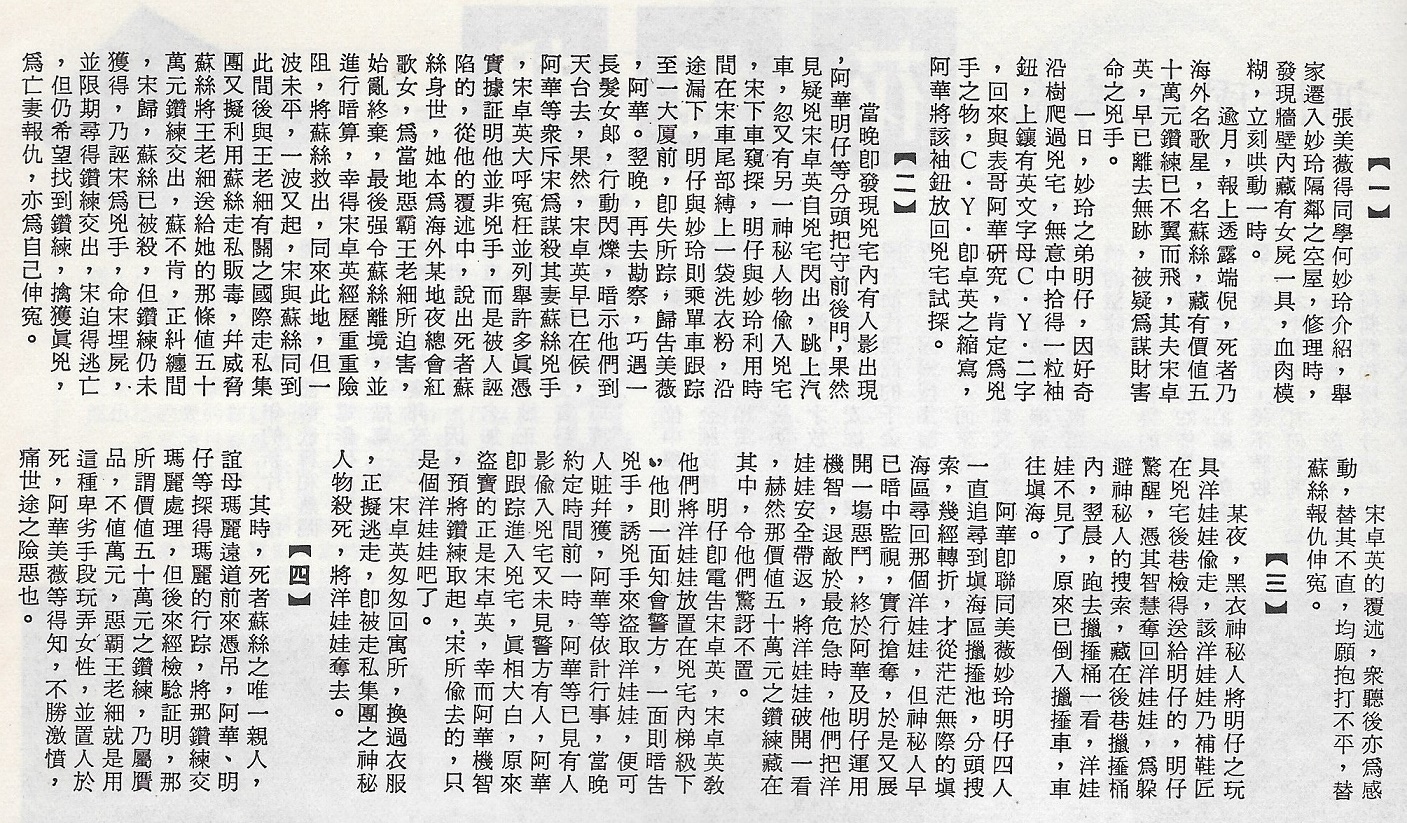 【一】
張美薇得同學何妙玲介紹，舉
家遷入妙玲隔鄰之空屋，修理時，
發現牆壁內藏有女屍一具，血肉模
糊，立刻哄動一時。
逾月，報上透露端倪，死者乃
海外名歌星，名蘇絲，藏有價值五
十萬元鑽練已不翼而飛，其夫宋卓
英，早已離去無跡，被疑爲謀財害
命之兇手。
一日，妙玲之弟明仔，因好奇
沿樹爬過兇宅，無意中拾得一粒袖
鈕，上鑲有英文字母Ｃ·Ｙ·二字
，回來與表哥阿華研究，肯定爲兇
手之物，Ｃ·Ｙ·卽卓英之縮寫，
阿華將該袖鈕放回兇宅試探。
【二】
當晚卽發現兇宅內有人影出現
，阿華明仔等分頭把守前後門，果然
見疑兇宋卓英自兇宅閃出，跳上汽
車，忽又有另一神秘人物偷入兇宅
，宋下車窺探，明仔與妙玲利用時
間在宋車尾部縛上一袋洗衣粉，沿
途漏下，明仔與妙玲則乘單車跟踪
至一大厦前，卽失所踪，歸告美薇
，阿華。翌晚，再去勘察，巧遇一
長髮女郎，行動閃爍，暗示他們到
天台去，果然，宋卓英早已在候，
阿華等衆斥宋爲謀殺其妻蘇絲兇手
，宋卓英大呼寃枉並列舉許多眞憑
實據証明他並非兇手，而是被人誣
陷的，從他的覆述中，說出死者蘇
絲身世，她本爲海外某地夜總會紅
歌女，爲當地惡霸王老細所迫害，
始亂終棄，最後强令蘇絲離境，並
進行暗算，幸得宋卓英經歷重重險
阻，將蘇絲救出，同來此地，但一
波未平，一波又起，宋與蘇絲同到
此間後與王老細有關之國際走私集
團又擬利用蘇絲走私販毒，幷威脅
蘇絲將王老細送給她的那條值五十
萬元鑽練交出，蘇不肯，正糾纏間
，宋歸，蘇絲已被殺，但鑽練仍未
獲得，乃誣宋爲兇手，命宋埋屍，
並限期尋得鑽練交出，宋迫得逃亡
，但仍希望找到鑽練，擒獲眞兇，
爲亡妻報仇，亦爲自己伸寃。
宋卓英的覆述，衆聽後亦爲感
動，替其不直，均願抱打不平，替
蘇絲報仇伸寃。
【三】
某夜，黑衣神秘人將明仔之玩
具洋娃娃偷走，該洋娃娃乃補鞋匠
在兇宅後巷檢得送給明仔的，明仔
驚醒，憑其智慧奪回洋娃娃，爲躲
避神秘人的搜索，藏在後巷擸𢶍桶
內，翌晨，跑去擸𢶍桶一看，洋娃
娃不見了，原來已倒入擸𢶍車，車
往塡海。
阿華卽聯同美薇妙玲明仔四人
一直追尋到塡海區擸𢶍池，分頭搜
索，幾經轉折，才從茫茫無際的塡
海區尋回那個洋娃娃，但神秘人早
已暗中監視，實行搶奪，於是又展
開一塲惡鬥，終於阿華及明仔運用
機智，退敵於最危急時，他們把洋
娃娃安全帶返，將洋娃娃破開一看
，赫然那價值五十萬元之鑽練藏在
其中，令他們驚訝不置。
明仔卽電告宋卓英，宋卓英敎
他們將洋娃娃放置在兇宅內梯級下
，他則一面知會警方，一面則暗告
兇手，誘兇手來盜取洋娃娃，便可
人贓幷獲，阿華等依計行事，當晚
約定時間前一時，阿華等已見有人
影偷入兇宅又未見警方有人，阿華
卽跟踪進入兇宅，眞相大白，原來
盜寶的正是宋卓英，幸而阿華機智
，預將鑽練取起，宋所偷去的，只
是個洋娃娃吧了。
宋卓英匆匆回寓所，換過衣服
，正擬逃走，卽被走私集團之神秘
人物殺死，將洋娃娃奪去。
【四】
其時，死者蘇絲之唯一親人，
誼母瑪麗遠道前來憑吊，阿華、明
仔等探得瑪麗的行踪，將那鑽練交
瑪麗處理，但後來經檢驗証明，那
所謂價值五十萬元之鑽練，乃屬贋
品，不值萬元，惡霸王老細就是用
這種卑劣手段玩弄女性，並置人於
死，阿華美薇等得知，不勝激憤，
痛世途之險惡也。